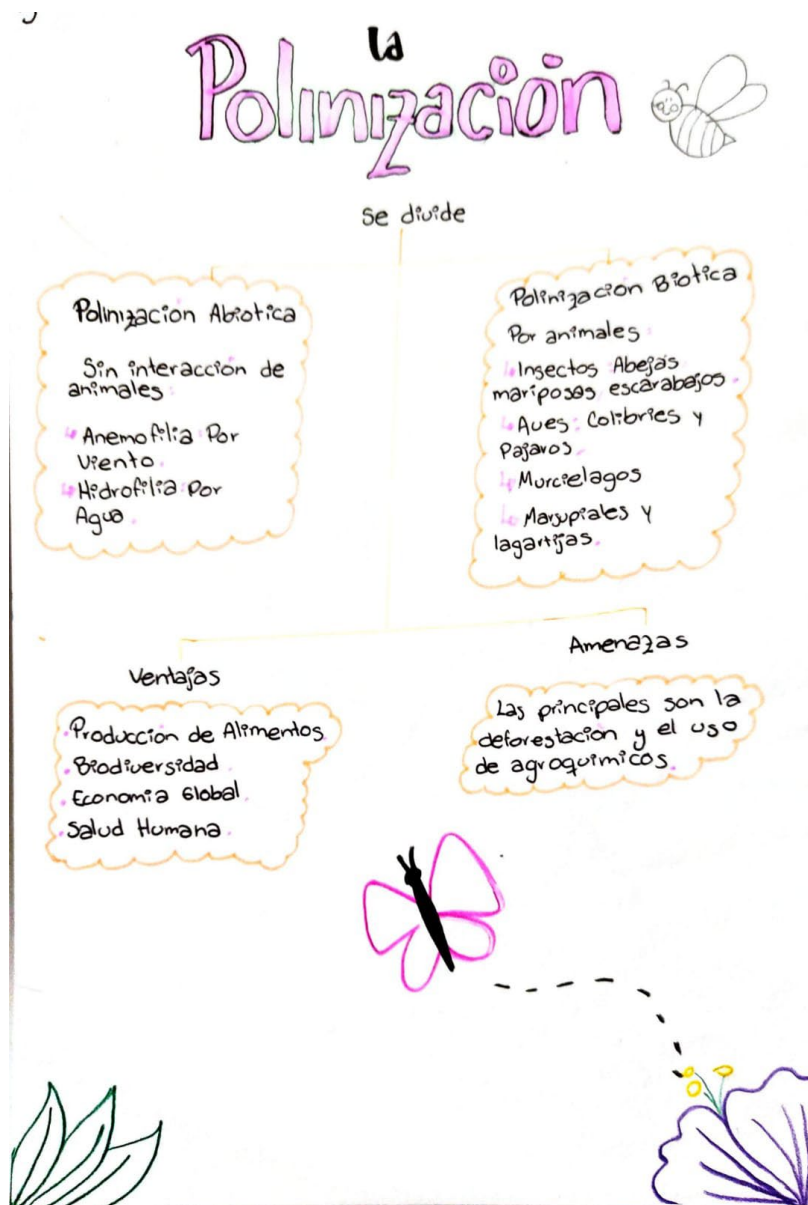 la
Polinización
se divide
Polinización Abiotica
Sin interacción de
animales:
Anemofilia Por
Viento.
Hidrofilia: Por
Agua.
Polinización Biotica
Por animales:
Insectos: Abejas
mariposas escarabajos.
Aves: Colibries y
Pajaros.
Murcielagos
Marsupiales y
lagartijas.
Ventajas
Producción de Alimentos.
Biodiversidad.
Economia Global.
Salud Humana.
Amenazas
Las principales son la
deforestación y el uso
de agroquimicos.